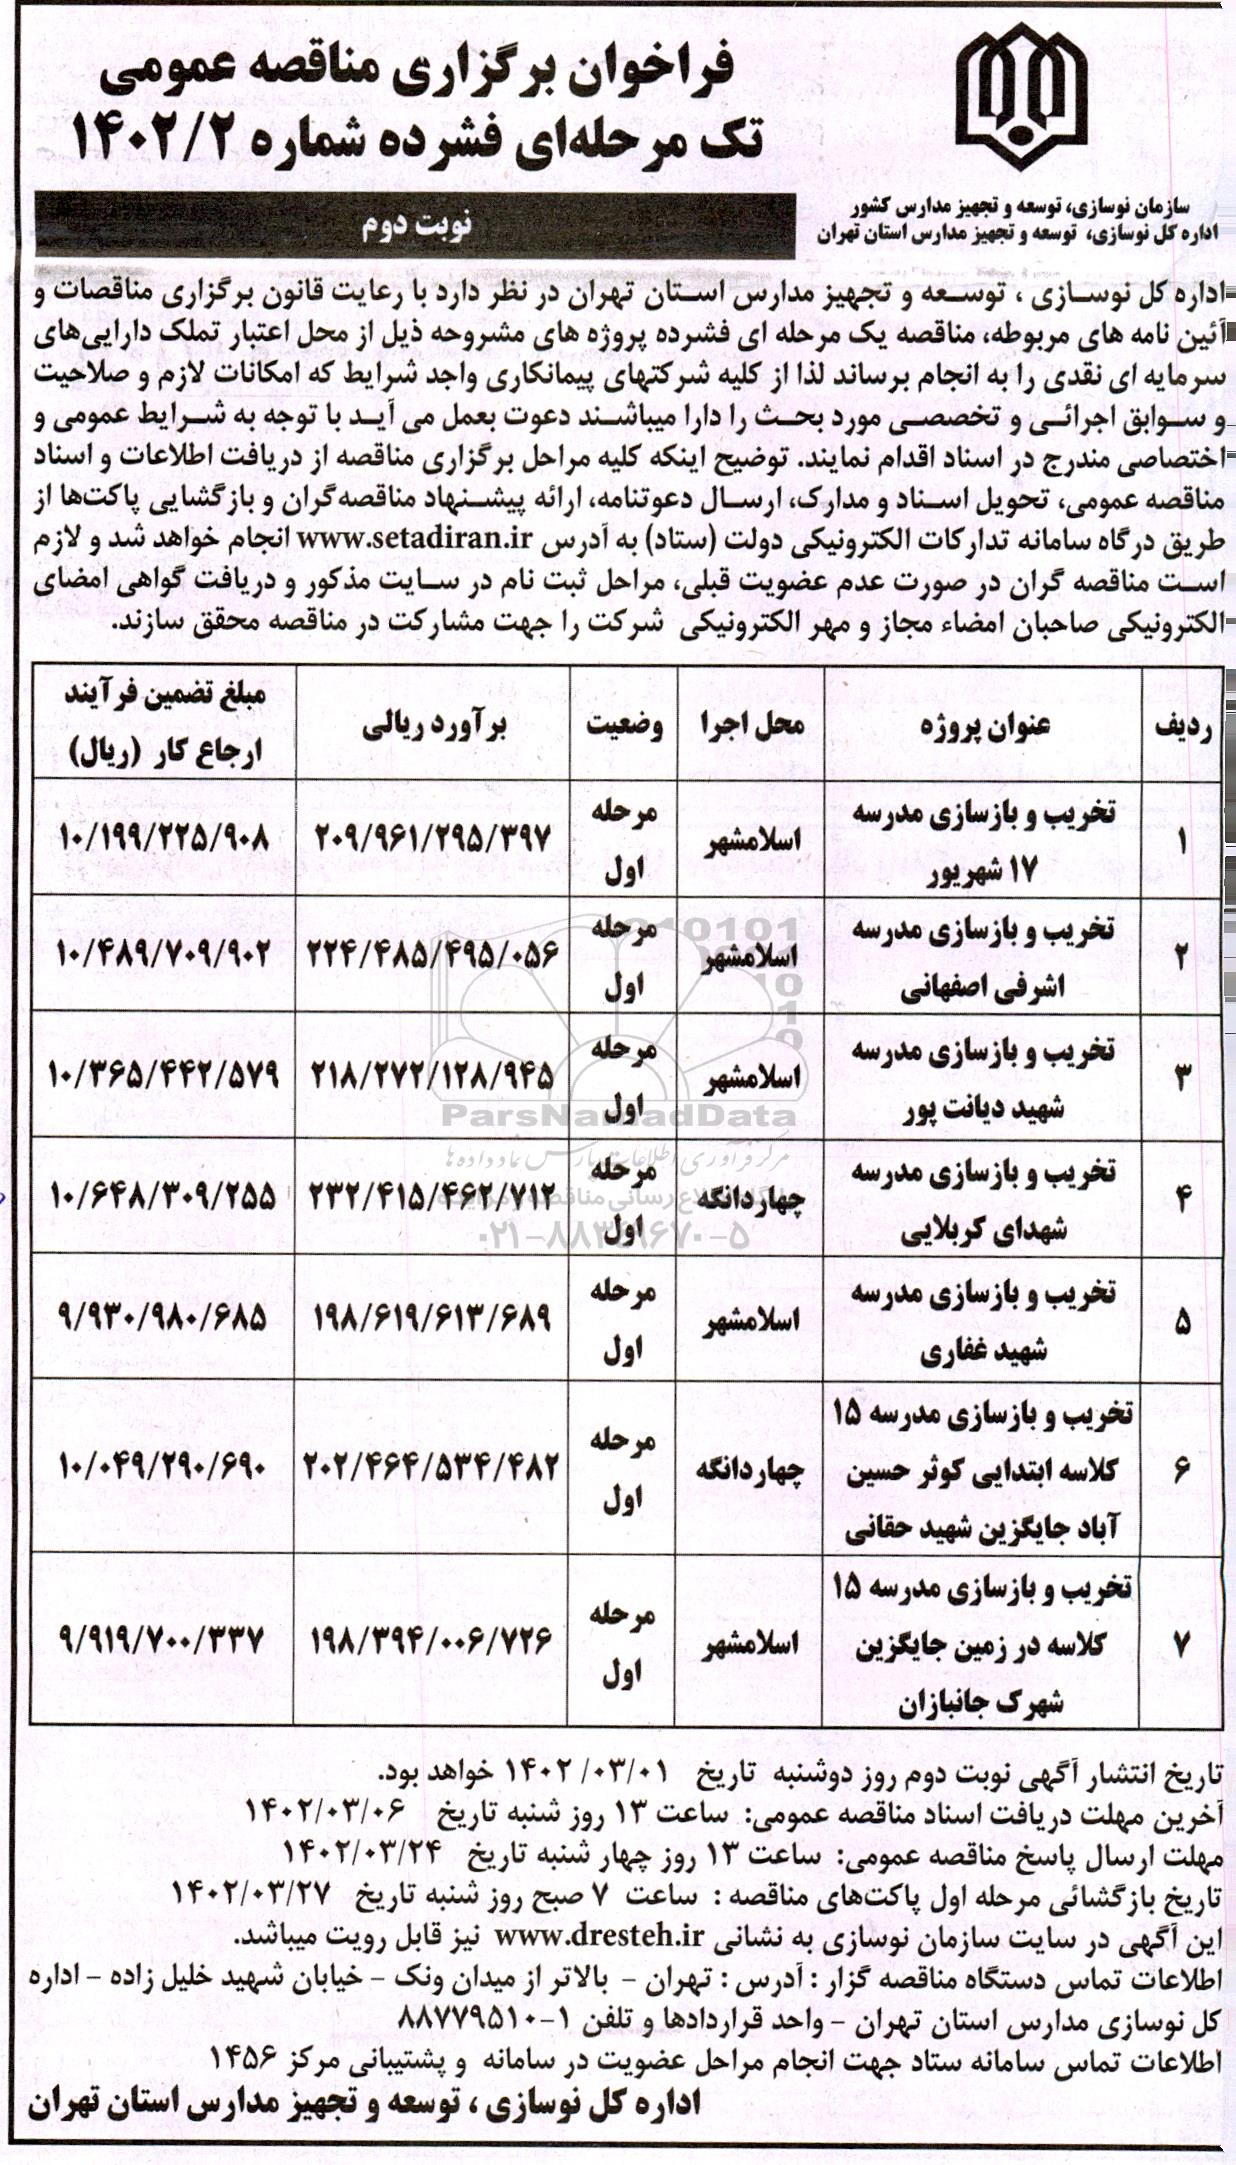 فراخوان برگزاری مناقصه عمومی
تک مرحله‌ای فشرده شماره ۱۴۰۲/۲
سازمان نوسازی، توسعه و تجهیز مدارس کشور
اداره کل نوسازی، توسعه و تجهیز مدارس استان تهران
نوبت دوم
اداره کل نوسازی ، توسعه و تجهیز مدارس استان تهران در نظر دارد با رعایت قانون برگزاری مناقصات و
آئین نامه های مربوطه، مناقصه یک مرحله ای فشرده پروژه های مشروحه ذیل از محل اعتبار تملک دارایی‌های
سرمایه ای نقدی را به انجام برساند لذا از کلیه شرکتهای پیمانکاری واجد شرایط که امکانات لازم و صلاحیت
و سوابق اجرائی و تخصصی مورد بحث را دارا میباشند دعوت بعمل می آید با توجه به شرایط عمومی و
اختصاصی مندرج در اسناد اقدام نمایند. توضیح اینکه کلیه مراحل برگزاری مناقصه از دریافت اطلاعات و اسناد
مناقصه عمومی، تحویل اسناد و مدارک، ارسال دعوتنامه، ارائه پیشنهاد مناقصه‌گران و بازگشایی پاکت‌ها از
طریق درگاه سامانه تدارکات الکترونیکی دولت (ستاد) به آدرس www.setadiran.ir انجام خواهد شد و لازم
است مناقصه گران در صورت عدم عضویت قبلی، مراحل ثبت نام در سایت مذکور و دریافت گواهی امضای
الکترونیکی صاحبان امضاء مجاز و مهر الکترونیکی شرکت را جهت مشارکت در مناقصه محقق سازند.
ردیف عنوان پروژه محل اجرا وضعیت برآورد ریالی مبلغ تضمین فرآیند
ارجاع کار (ریال)
۱ تخریب و بازسازی مدرسه
۱۷ شهریور اسلامشهر مرحله
اول ۲۰۹/۹۶۱/۲۹۵/۳۹۷ ۱۰/۱۹۹/۲۲۵/۹۰۸
۲ تخریب و بازسازی مدرسه
اشرفی اصفهانی اسلامشهر مرحله
اول ۲۲۴/۴۸۵/۴۹۵/۰۵۶ ۱۰/۴۸۹/۷۰۹/۹۰۲
۳ تخریب و بازسازی مدرسه
شهید دیانت پور اسلامشهر مرحله
اول ۲۱۸/۲۷۲/۱۲۸/۹۴۵ ۱۰/۳۶۵/۴۴۲/۵۷۹
۴ تخریب و بازسازی مدرسه
شهدای کربلایی چهاردانگه مرحله
اول ۲۳۲/۴۱۵/۴۶۲/۷۱۲ ۱۰/۶۴۸/۳۰۹/۲۵۵
۵ تخریب و بازسازی مدرسه
شهید غفاری اسلامشهر مرحله
اول ۱۹۸/۶۱۹/۶۱۳/۶۸۹ ۹/۹۳۰/۹۸۰/۶۸۵
۶ تخریب و بازسازی مدرسه ۱۵
کلاسه ابتدایی کوثر حسین
آباد جایگزین شهید حقانی چهاردانگه مرحله
اول ۲۰۲/۴۶۴/۵۳۴/۴۸۲ ۱۰/۰۴۹/۲۹۰/۶۹۰
۷ تخریب و بازسازی مدرسه ۱۵
کلاسه در زمین جایگزین
شهرک جانبازان اسلامشهر مرحله
اول ۱۹۸/۳۹۴/۰۰۶/۷۲۶ ۹/۹۱۹/۷۰۰/۳۳۷
ParsNamadData
مرکز فرآوری اطلاعات پارس نماد داده‌ها
تاریخ انتشار آگهی نوبت دوم روز دوشنبه تاریخ ۱۴۰۲/۰۳/۰۱ خواهد بود.
آخرین مهلت دریافت اسناد مناقصه عمومی: ساعت ۱۳ روز شنبه تاریخ ۱۴۰۲/۰۳/۰۶
مهلت ارسال پاسخ مناقصه عمومی: ساعت ۱۳ روز چهار شنبه تاریخ ۱۴۰۲/۰۳/۲۴
تاریخ بازگشائی مرحله اول پاکت‌های مناقصه : ساعت ۷ صبح روز شنبه تاریخ ۱۴۰۲/۰۳/۲۷
این آگهی در سایت سازمان نوسازی به نشانی www.dresteh.ir نیز قابل رویت میباشد.
اطلاعات تماس دستگاه مناقصه گزار : آدرس : تهران - بالاتر از میدان ونک - خیابان شهید خلیل زاده - اداره
کل نوسازی مدارس استان تهران - واحد قراردادها و تلفن ۱-۸۸۷۷۹۵۱۰
اطلاعات تماس سامانه ستاد جهت انجام مراحل عضویت در سامانه و پشتیبانی مرکز ۱۴۵۶
اداره کل نوسازی ، توسعه و تجهیز مدارس استان تهران